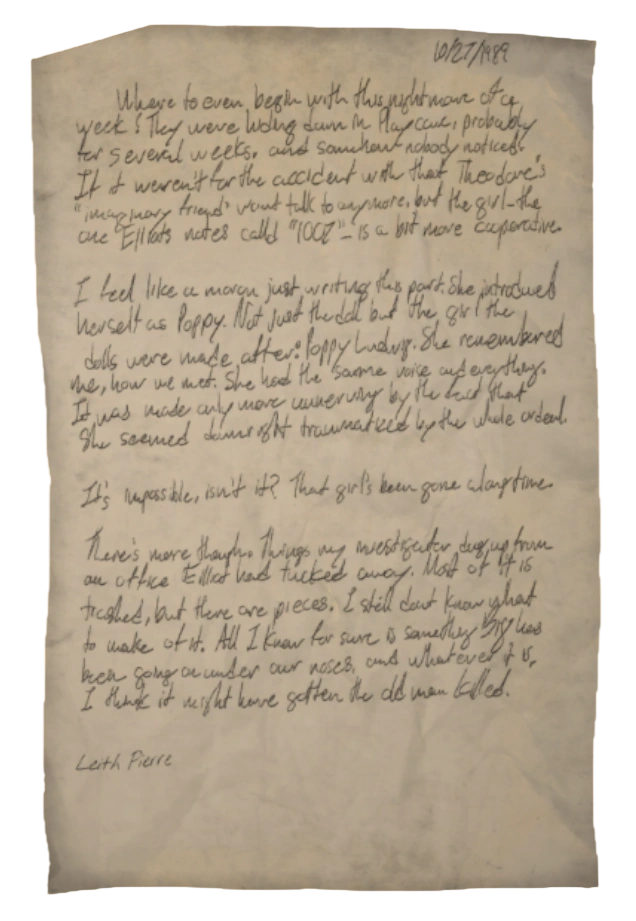 10/27/1989
Where to even begin with this nightmare of a
week? They were hiding down in Playcare, probably
for several weeks, and somehow nobody noticed.
If it weren't for the accident with that Theodore's
"imaginary friend" won't talk to anymore, but the girl-the
one Elliots notes calld "1007"-is a bit more cooperative.
I feel like a moron just writing this part. She introduced
herself as Poppy. Not just the doll but the girl the
dolls were made after: Poppy Ludwig. She remembered
me, how we met. She had the same voice and everything.
It was made only more unnerving by the fact that
She seemed downright traumatized by the whole ordeal.
It's impossible, isn't it? That girl's been gone a long time.
There's more though. Things my investigator dug up from
an office Elliot had tucked away. Most of it is
trashed, but there are pieces. I still dont know what
to make of it. All I know for sure is something big has
been going on under our noses, and whatever it is,
I think it might have gotten the old man killed.
Leith Pierre